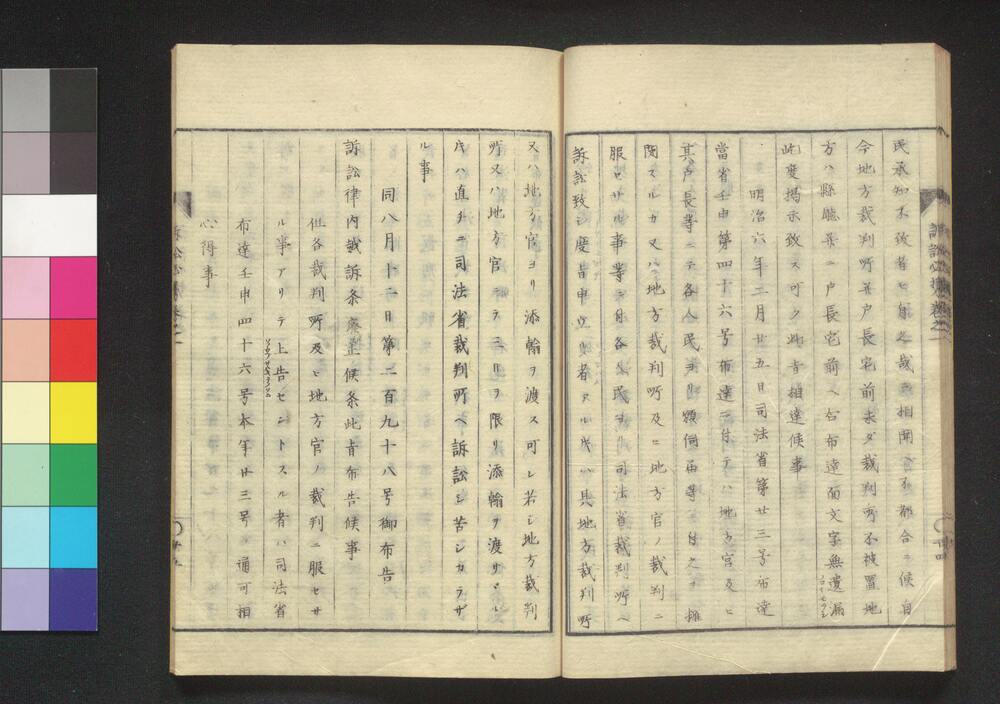 民承知不致者ヒ自之裁相聞不都合ニ候自
今地方裁判所并戸長宅前未ダ裁判所不被置地
方ハ縣聽并ニ戸長宅前ヘ右布達面文字無遺漏
此度掲示致ス可ク此旨相達候事
明治六年二月廿五日司法省第廿三号布達
當省壬申第四十六号布達ニ付テハ地方官及ヒ
其戸長等ニテ各人民ヨリ願伺届等ニ付之ヲ擁
閉スルカ又ハ地方裁判所及ヒ地方官ノ裁判ニ
服セサル事等ニ付各人民ヨリ司法省裁判所ヘ
訴訟致シ度旨申立ル者アル時ハ其地方裁判所
又ハ地方官ヨリ添翰ヲ渡ス可シ若シ地方裁判
所又ハ地方官ニテ三日ヲ限リ添翰ヲ渡サヽル
時ハ直チニ司法省裁判所ヘ訴訟シ苦シカラザ
ル事
同八月十二日第二百九十八号御布告
訴訟律内裁訴条廢止候条此旨布告候事
但各裁判所及ヒ地方官ノ裁判ニ服セサ
ル事アリテ上告セントスル者ハ司法省
布達壬申四十六号本年廿三号ノ通可相
心得事